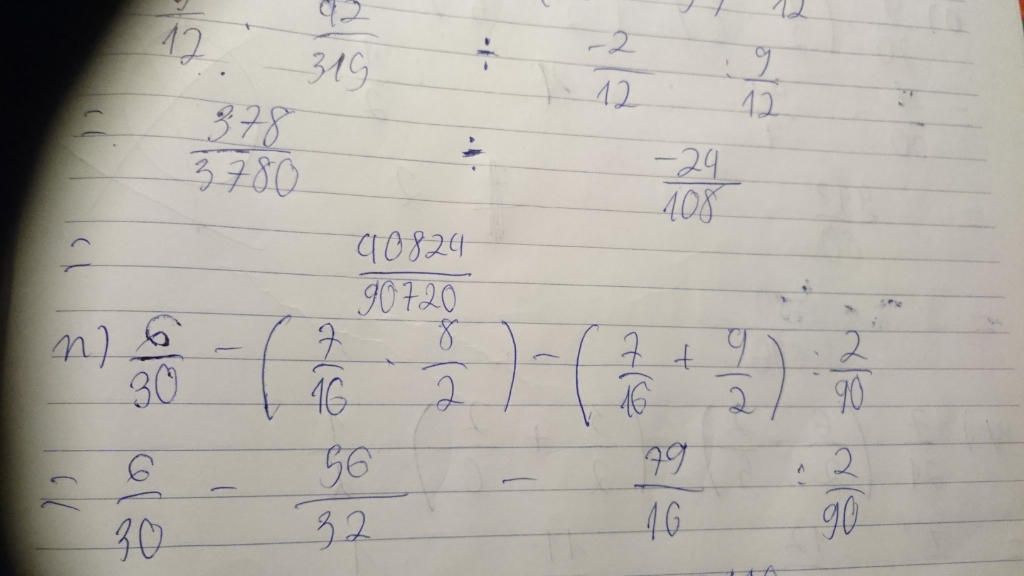 12 · 42/319 ÷ -2/12 : 9/12
= 378/3780 ÷ -24/108
= 40824/90720
n) 6/30 - (7/16 · 8/2) - (7/16 + 9/2) : 2/90
= 6/30 - 56/32 - 79/16 : 2/90